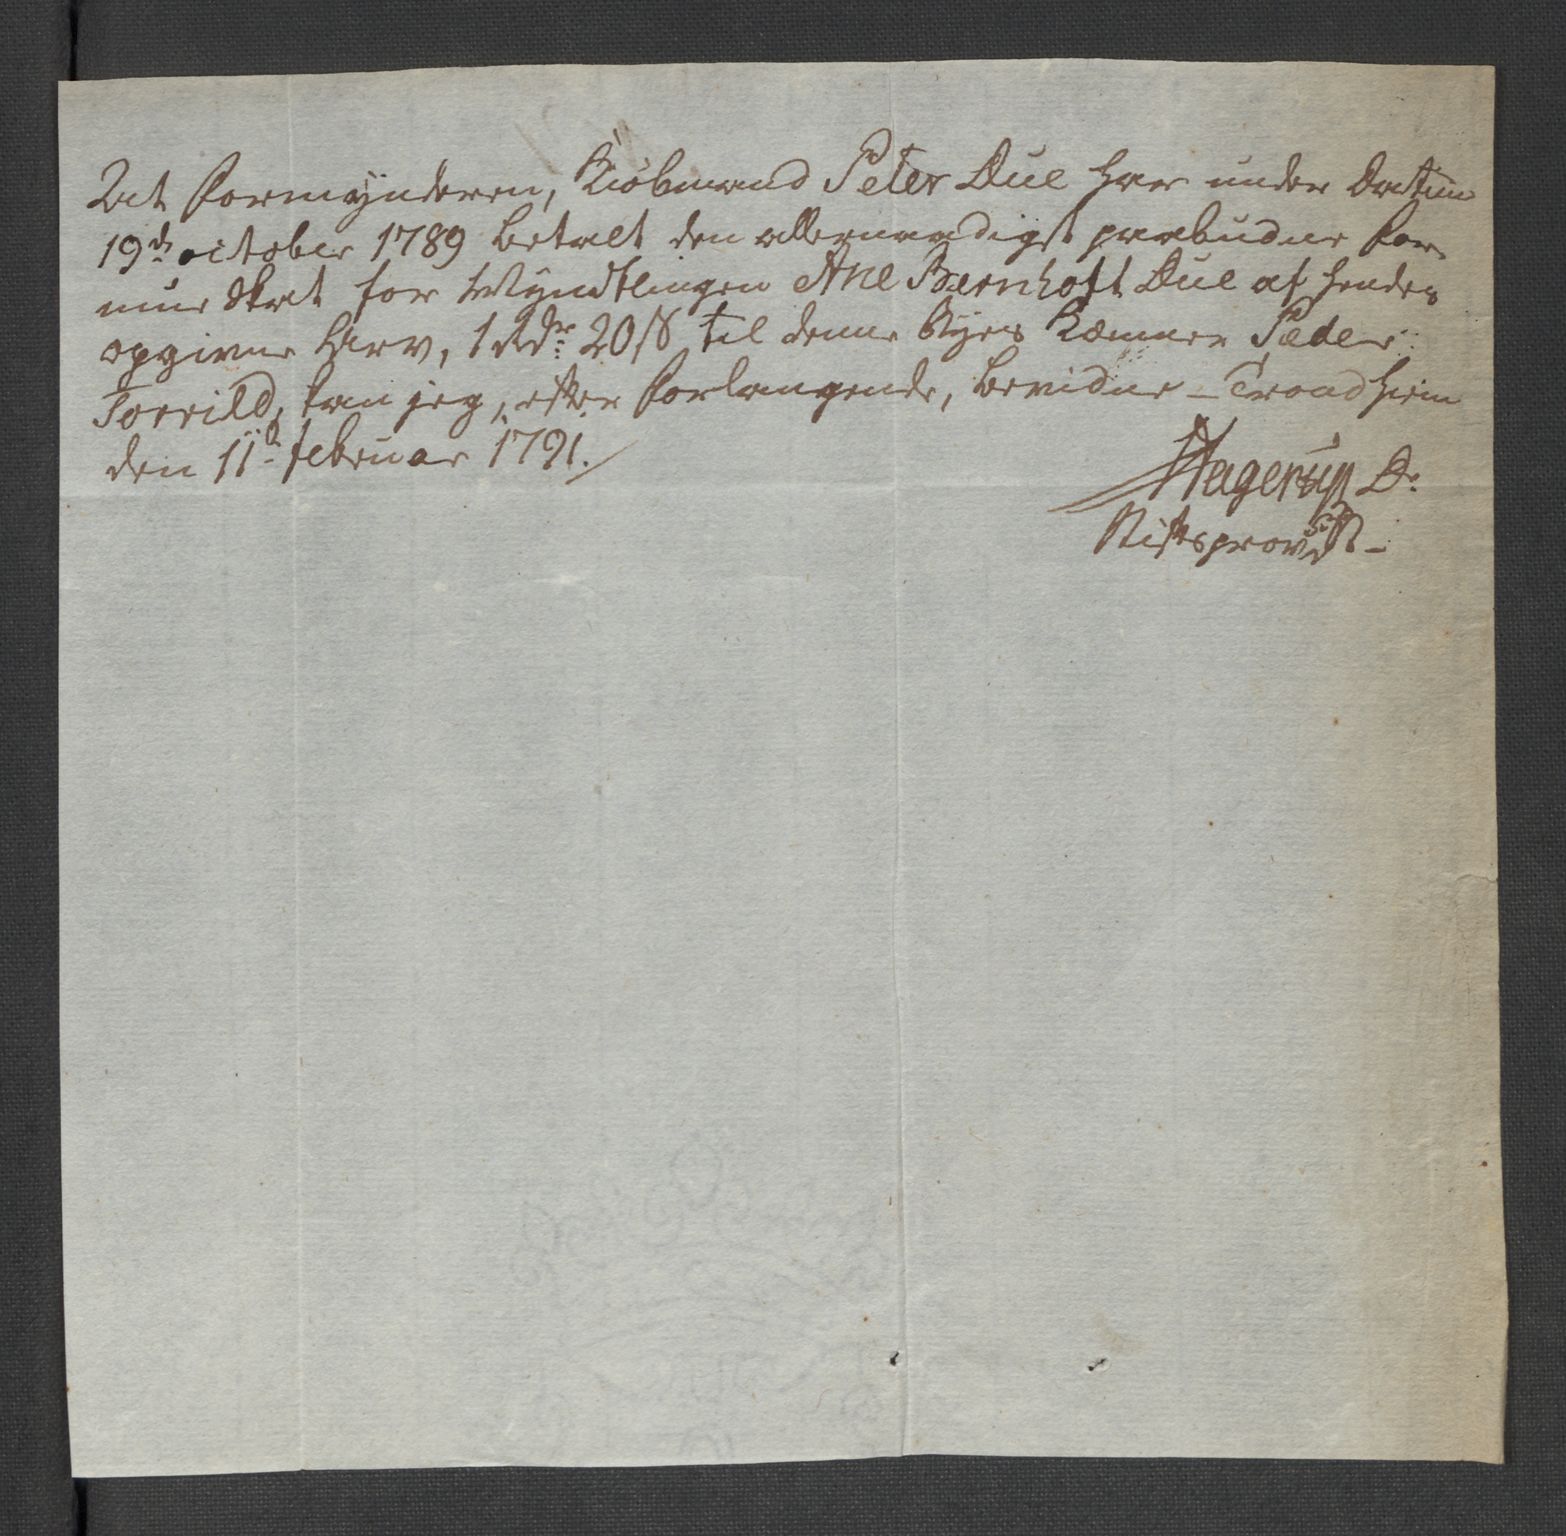 At Formÿnderen, Kiöbmand Peter Due har under Datum
19de october 1789 betalt den allernaadigst paabudne For-
mue Skat for Myndtlingen Ane Bernhoft Due af hendes
opgivne Arv, 1 Rdr 20 s til denne Byes Kæmner Peder
Torrild, kan jeg, efter Forlangende, bevidne – Trondhiem
den 11te februar 1791.
Hagerup Dr
Stiftsprovst –